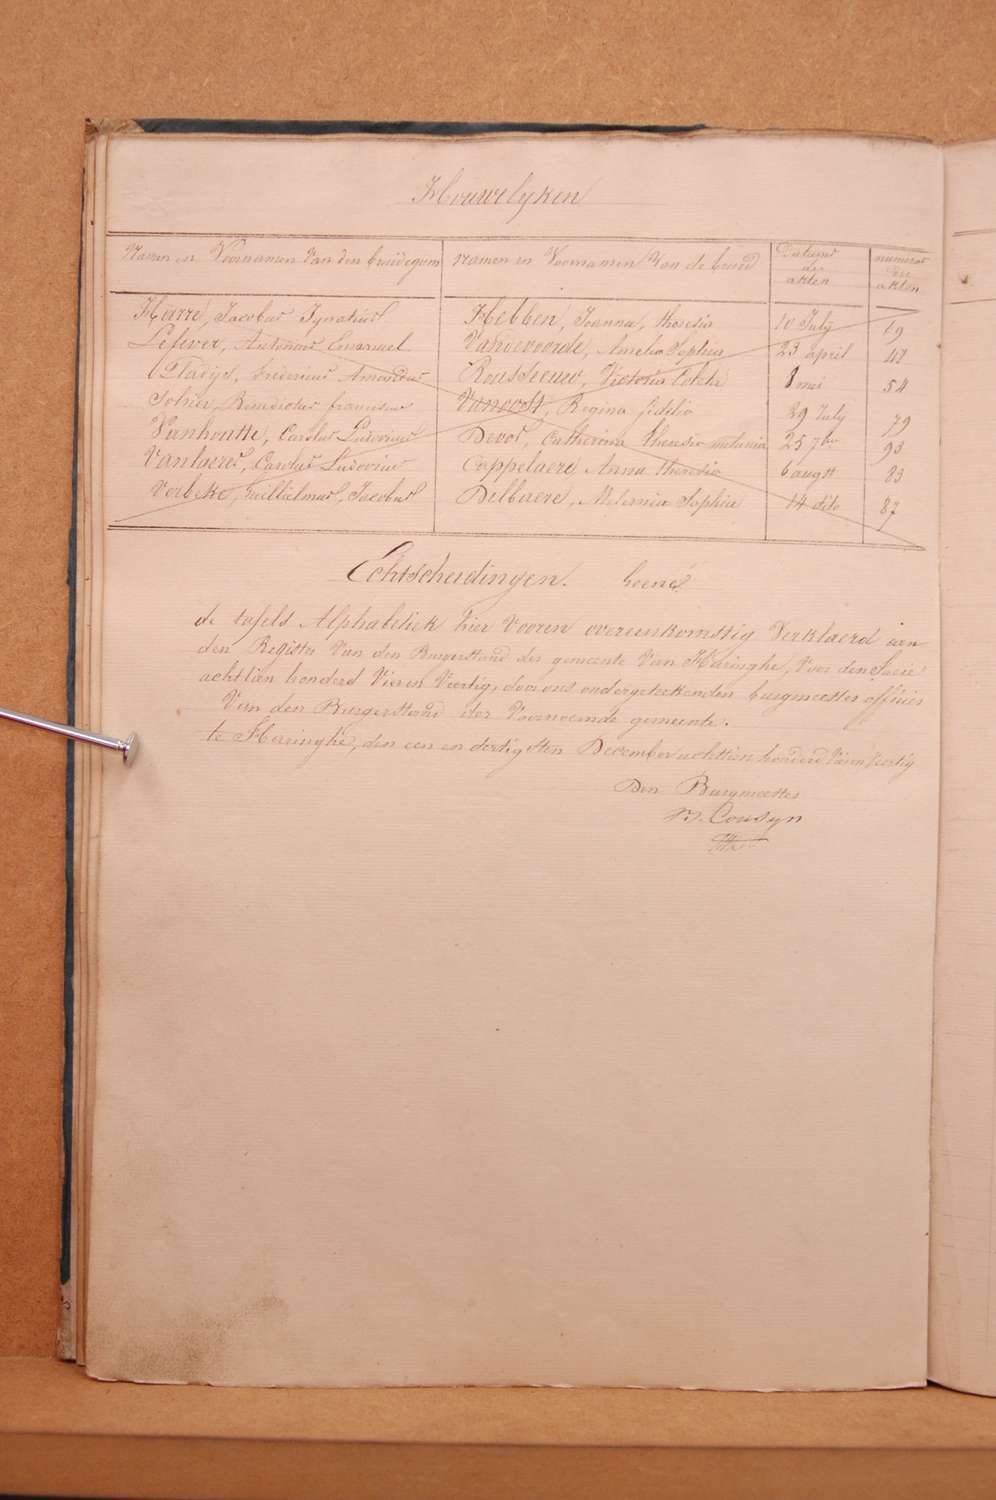 Houwelyken
Namen en Voornamen Van den bruidegom Namen en Voornamen Van de bruid Datums der akten numeros der akten
Harre, Jacobus Ignatius Hebben, Joanna, theresia 10 July 69
Lefever, Antonius Emanuel Vandevoorde, Amelia Sophia 23 april 47
Pladys, Fredericus Amandus Rousseeuw, Victoria Coleta 8 mei 54
Benedictus franciscus Vanoost, Regina fidelia 29 July 79
Vanhoutte, Carolus Ludovicus Devos, Catharina theresia melania 25 7bre 93
Vantaeres, Carolus Ludovicus Cappelaere Anna theresia 6 augst 83
Verbeke, Guillielmus, Jacobus Delbaere, Melania Sophia 14 dito 87
Echtscheidingen. Geene
de tafels Alphabetiek hier Vooren overeenkomstig Verklaerd aen
den Register Van den Burgerstand der gemeente Van Haringhe, Voor den Jaere
achttien honderd Vier en Veertig, door ons ondergeteekenden burgmeester officier
Van den Burgerstand der Voornoemde gemeente.
te Haringhe, den een en dertigsten December achttien honderd Vier en Veertig
Den Burgmeester
Cousyn